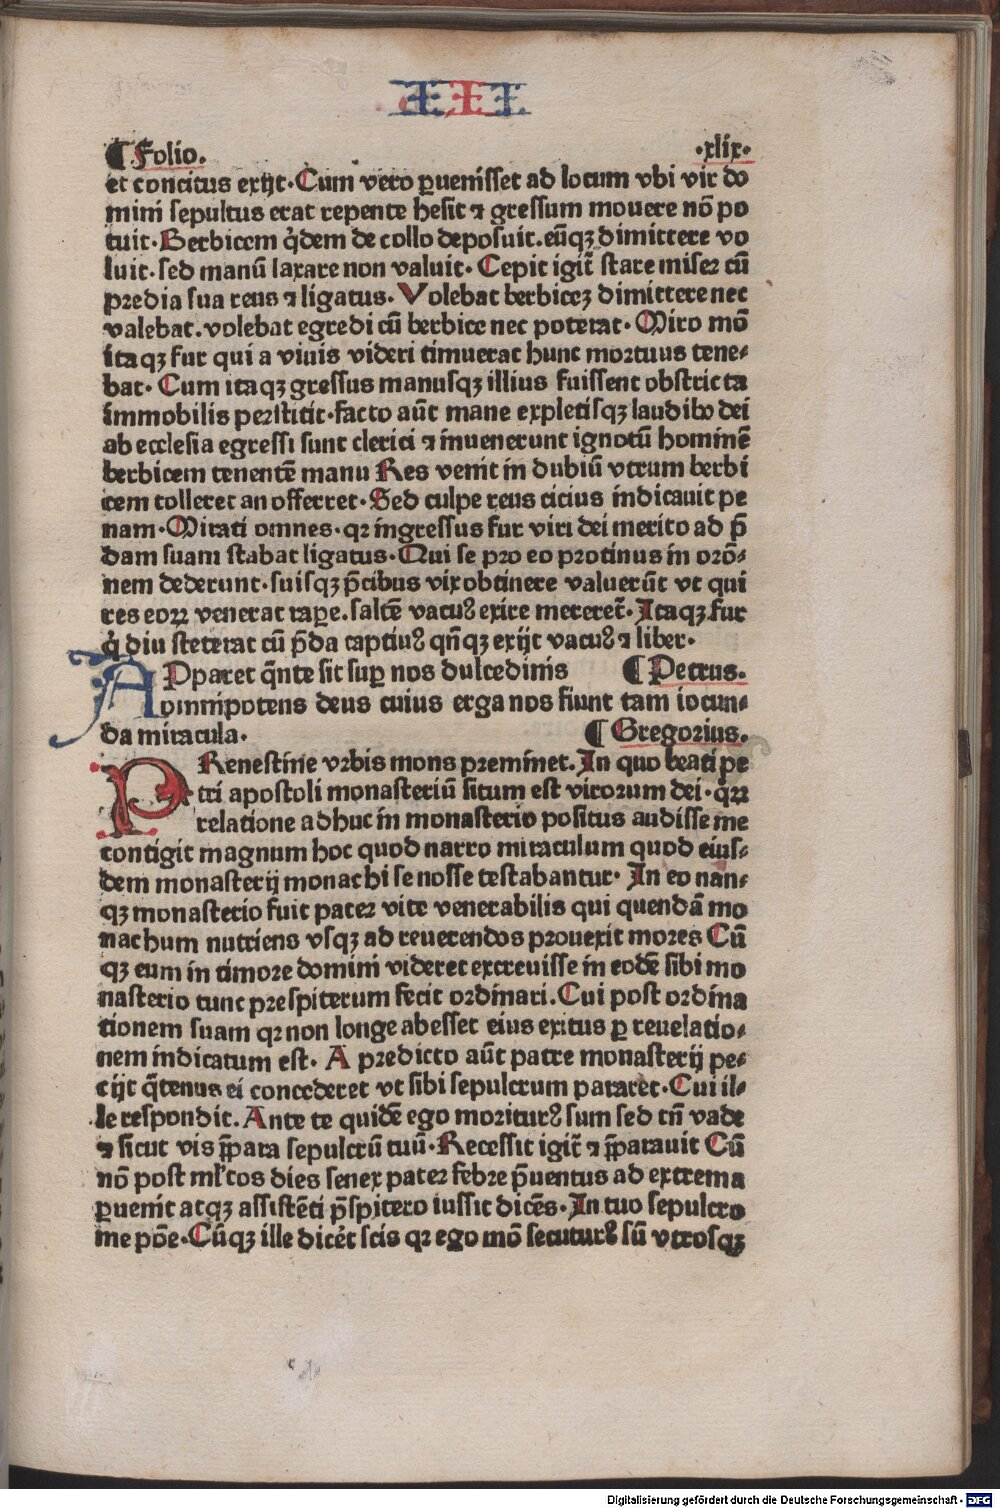 III
¶ Folio. ·xlix·
et concitus exijt· Cum vero ꝑuenisset ad locum vbi vir do
mini sepultus erat repente hesit ⁊ gressum mouere nō po
tuit· Berbicem q̇dem de collo deposuit. eūqꝫ dimittere vo
luit· sed manū laxare non valuit· Cepit igit̃ stare miser cū
predia sua reus ⁊ ligatus· Volebat berbiceꝫ dimittere nec
valebat. volebat egredi cū berbice nec poterat· Miro mō
itaqꝫ fur qui a viuis videri timuerat hunc mortuus tene⸗
bat· Cum itaqꝫ gressus manusqꝫ illius fuissent obstricta
immobilis perstitit· facto aūt mane expletisqꝫ laudibꝰ dei
ab ecclesia egressi sunt clerici ⁊ inuenerunt ignotū hominē
berbicem tenentē manu Res venit in dubiū vtrum berbi
cem tolleret an offerret· Sed culpe reus cicius indicauit pe
nam· Mirati omnes· qꝛ ingressus fur viri dei merito ad p̄
dam suam stabat ligatus· Qui se pro eo protinus in orō⸗
nem dederunt· suisqꝫ p̄cibus vix obtinere valuerūt vt qui
res eoꝝ venerat raꝑe. saltē vacuꝰ exire mereret̃· Itaqꝫ fur
q̇ diu steterat cū p̄da captiuꝰ qn̄qꝫ exijt vacuꝰ ⁊ liber·
APparet q̄nte sit suꝑ nos dulcedinis ¶ Petrus.
omnipotens deus cuius erga nos fiunt tam iocun⸗
da miracula. ¶ Gregorius.
PRenestine vrbis mons preminet. In quo beati pe
tri apostoli monasteriū situm est virorum dei· q̄ꝝ
relatione adhuc in monasterio positus audisse me
contigit magnum hoc quod narro miraculum quod eius⸗
dem monasterij monachi se nosse testabantur· In eo nan⸗
qꝫ monasterio fuit pater vite venerabilis qui quendā mo
nachum nutriens vsqꝫ ad reuerendos prouexit mores Cū
qꝫ eum in timore domini videret excreuisse in eodē sibi mo
nasterio tunc prespiterum fecit ordinari. Cui post ordina
tionem suam qꝛ non longe abesset eius exitus ꝑ reuelatio⸗
nem indicatum est· A predicto aūt patre monasterij pe⸗
cijt q̄tenus ei concederet vt sibi sepulcrum pararet· Cui il⸗
le respondit. Ante te quidē ego moriturꝰ sum sed tn̄ vade
⁊ sicut vis p̄para sepulcrū tuū· Recessit igit̃ ⁊ p̄parauit Cū
nō post ml̕tos dies senex pater febre p̄uentus ad extrema
ꝑuenit atqꝫ assistēti p̄spitero iussit dicēs· In tuo sepulcro
me pōe· Cūqꝫ ille dicēt scis qꝛ ego mō secuturꝰ sū vtrosqꝫ
Digitalisierung gefördert durch die Deutsche Forschungsgemeinschaft - DFG